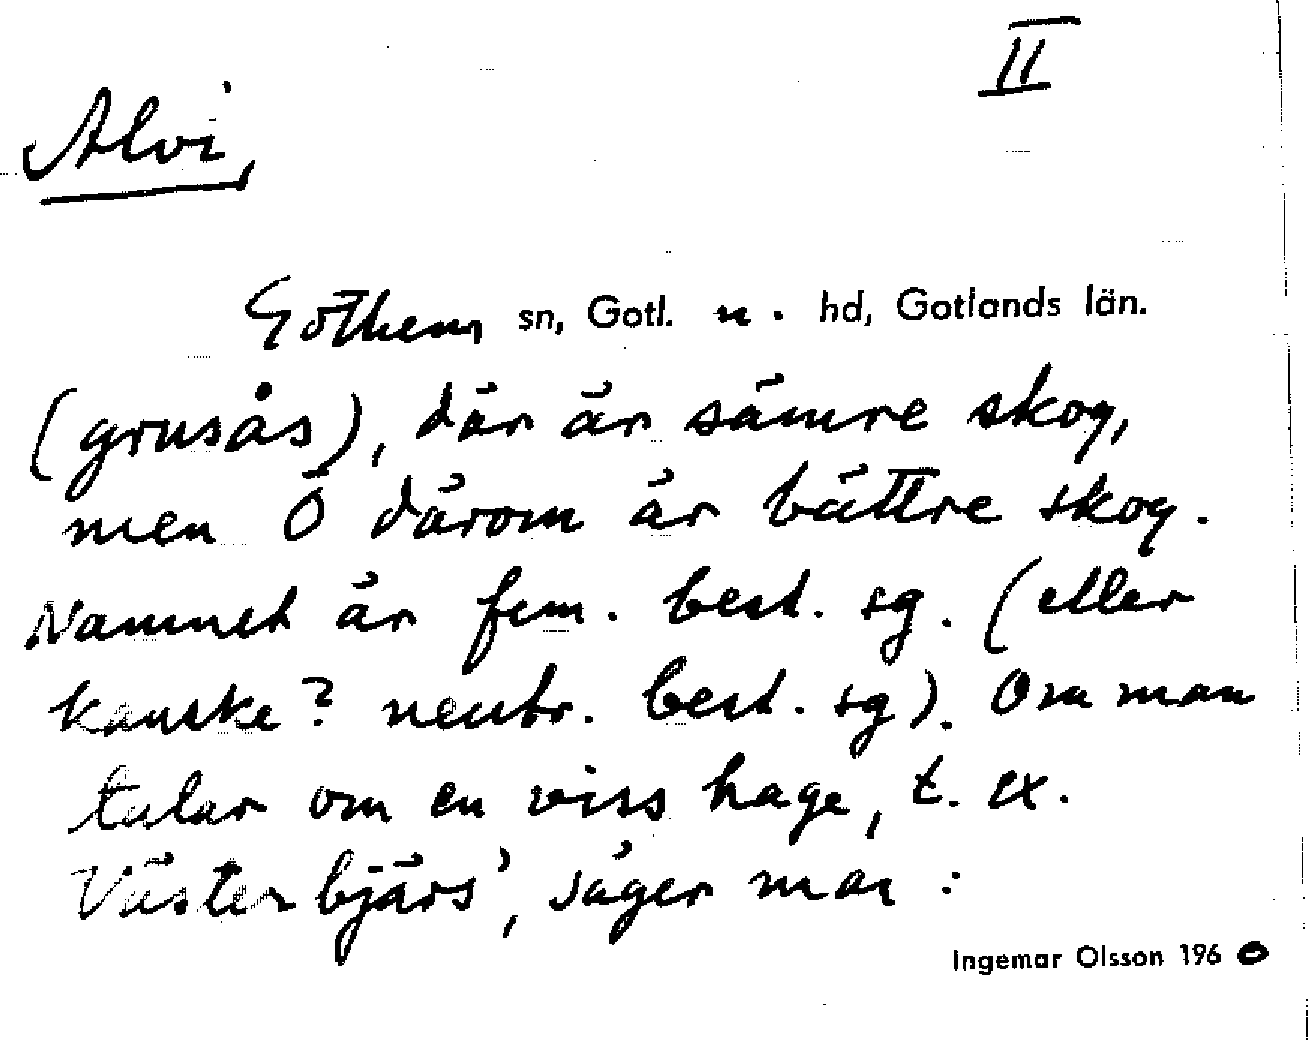 II
Alvi,
Gothem sn, Gotl. n. hd, Gotlands län.
(grusås), där är sämre skog,
men Ö därom är bättre skog.
Namnet är fem. best. sg. (eller
kanske? neutr. best. sg). Om man
talar om en viss hage, t. ex.
Västerbjärs', säger man:
Ingemar Olsson 1960